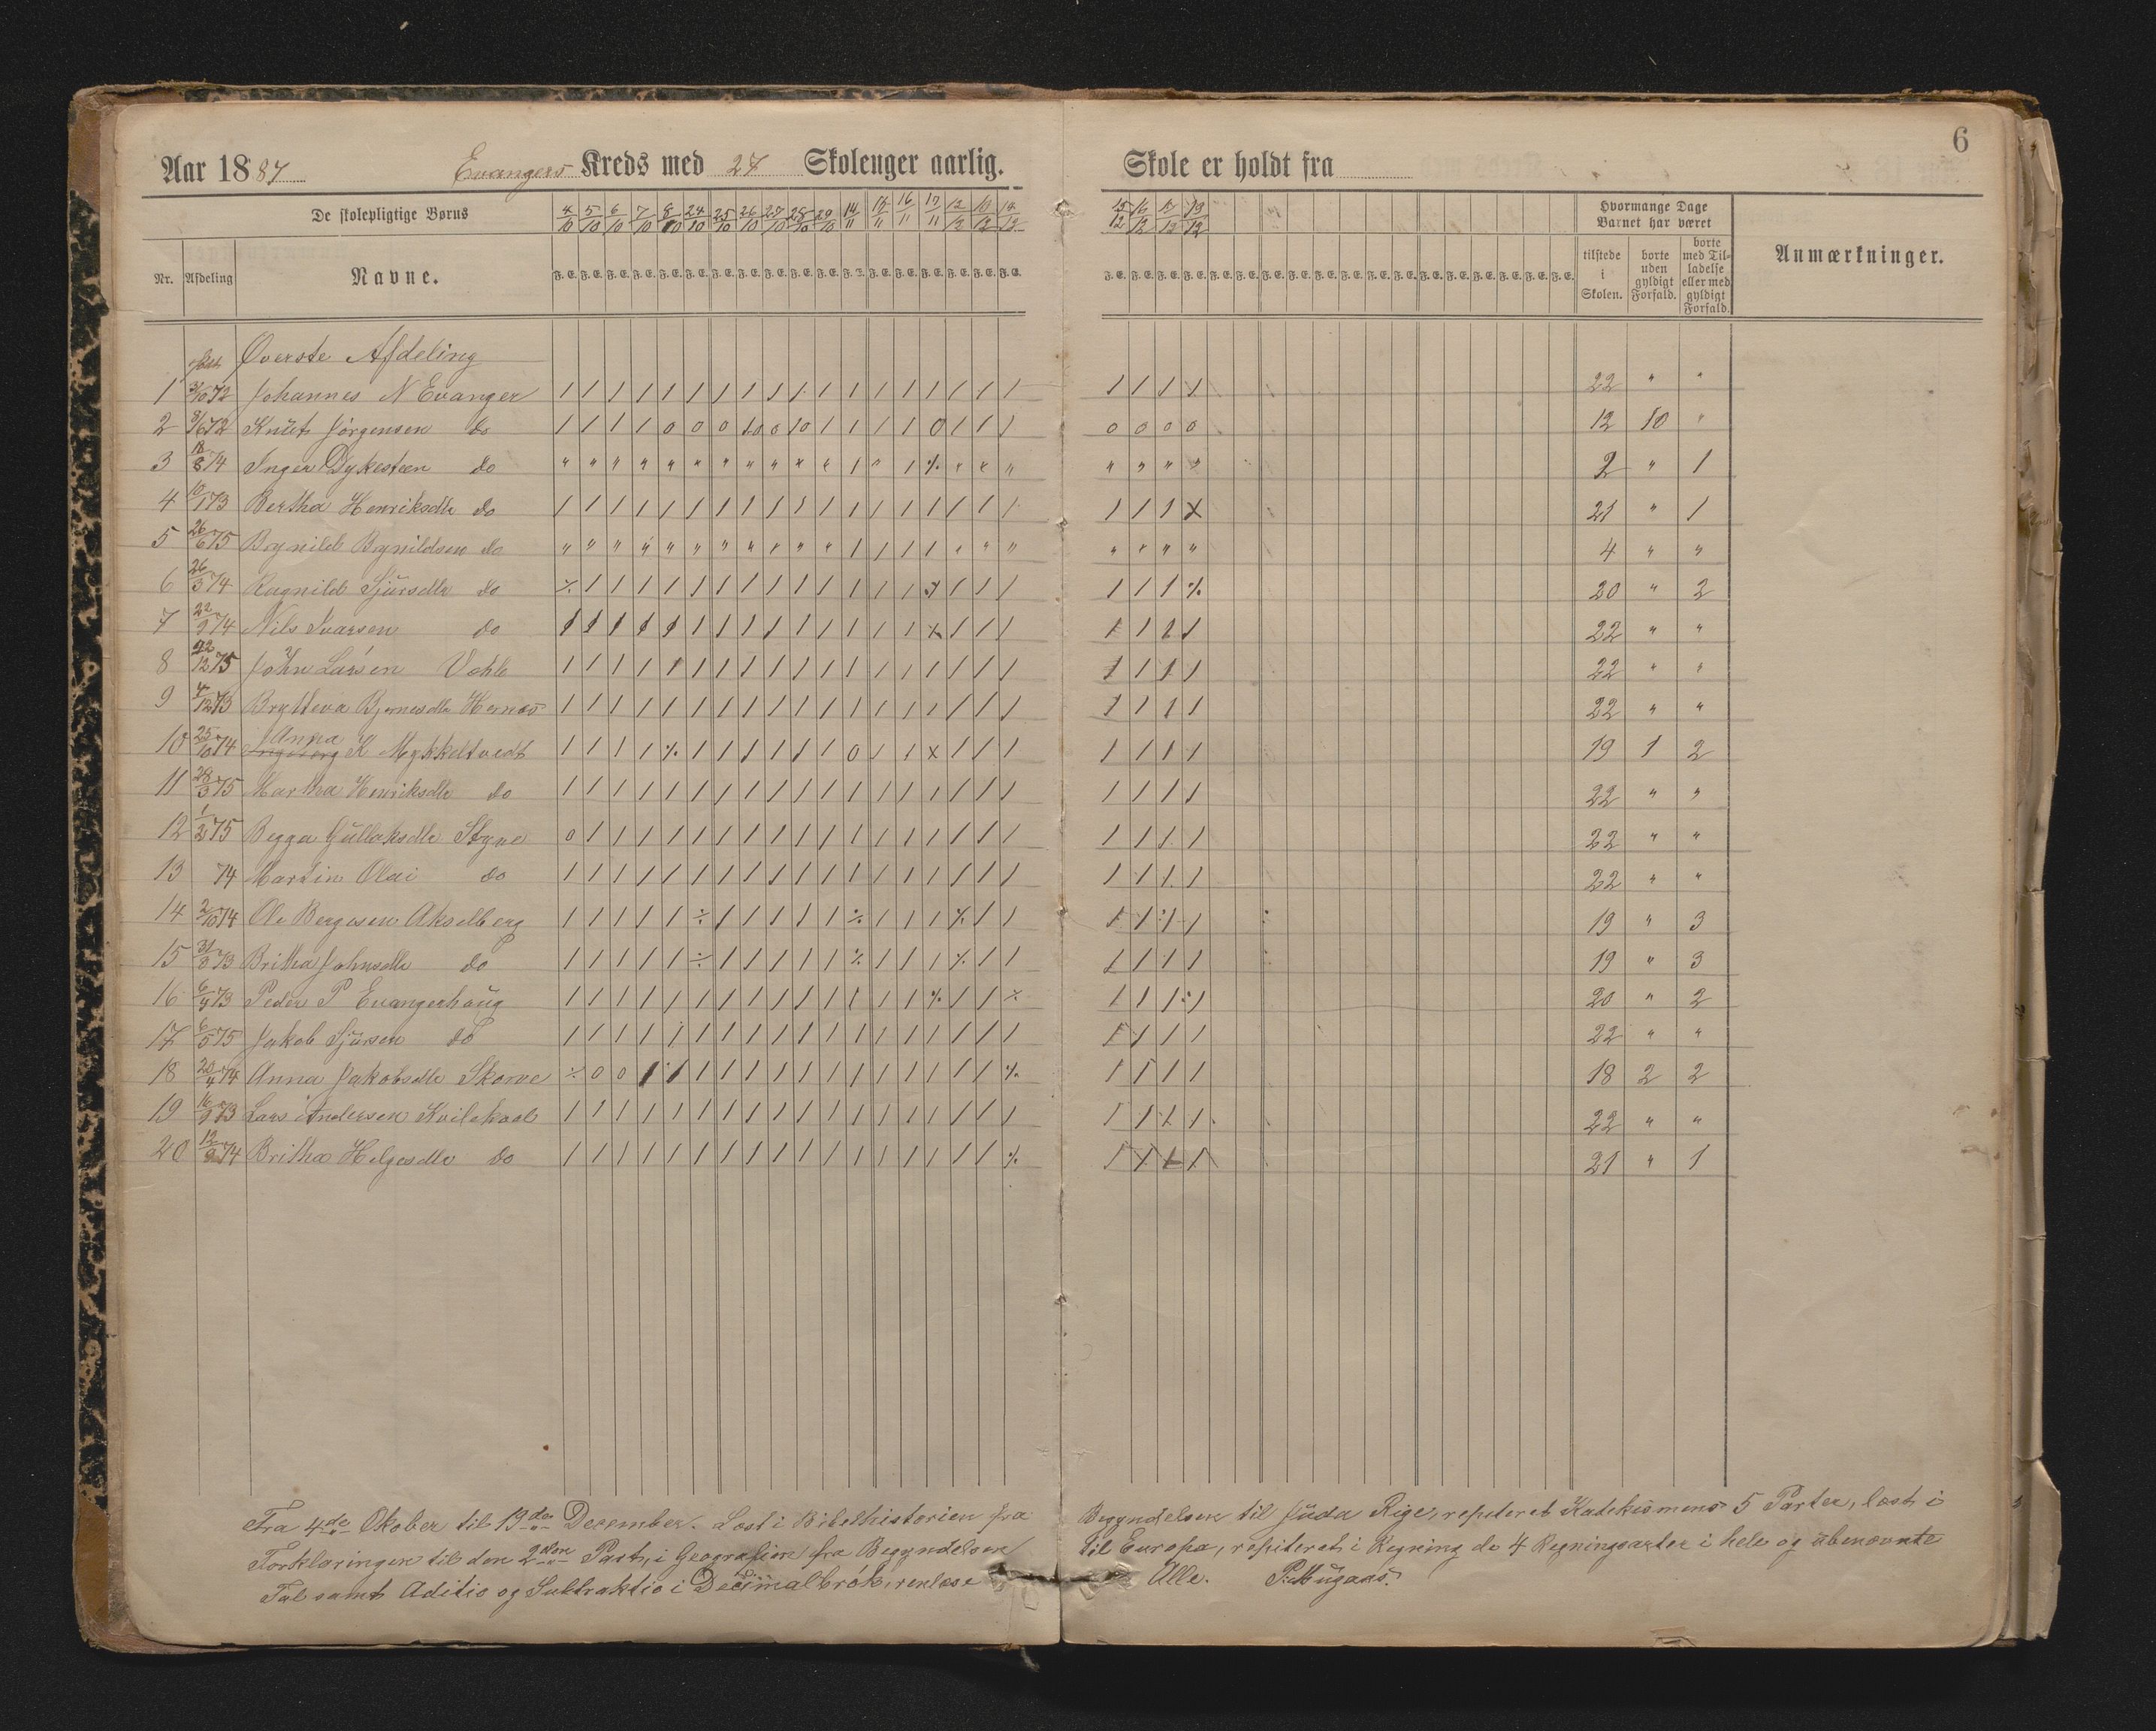 6
Aar 1887 Evangers Kreds med 27 Skoleuger aarlig. Skole er holdt fra
De skolepligtige Børns
4/10 5/10 6/10 7/10 8/10 24/10 25/10 26/10 27/10 28/10 29/10 14/11 15/11 16/11 17/11 12/12 13/12 14/12 15/12 16/12 17/12 19/12
Hvormange Dage Barnet har været
Nr. Afdeling Navne.
F. E. F. E. F. E. F. E. F. E. F. E. F. E. F. E. F. E. F. E. F. E. F. E. F. E. F. E. F. E. F. E. F. E. F. E.
F. E. F. E. F. E. F. E. F. E. F. E. F. E. F. E. F. E. F. E. F. E. F. E. F. E. F. E. F. E. F. E. F. E. F. E.
tilstede i Skolen. borte uden gyldigt Forfald. borte med Tilladelse eller med gyldigt Forfald. Anmærkninger.
Øverste Afdeling
1 72 Johannes N Evanger 22 " "
2 8/6 72 Knut Jørgensen do 12 10 "
3 18/8 74 Inger Dykesteen do 2 " 1
4 10/1 73 Bertha Henriksdtr do 21 " 1
5 26/6 75 Brynild Brynildsen do 4 " "
6 26/3 74 Ragnild Sjursdtr do 20 " 2
7 22/9 74 Nils Ivarsen do 22 " "
8 22/12 75 John Larsen Vahle 22 " "
9 4/12 73 Brytteva Bjørnesdtr Hernæs 22 " "
10 25/10 74 Anna K Mykkeltvedt 19 1 2
11 28/3 75 Martha Henriksdtr do 22 " "
12 1/2 75 Begga Gullaksdtr Styve 22 " "
13 74 Martin Olai do 22 " "
14 2/10 74 Ole Bergesen Akselberg 19 " 3
15 31/3 73 Britha Johnsdtr do 19 " 3
16 6/4 73 Peder P Evangerhaug 20 " 2
17 6/5 75 Jakob Sjursen do 22 " "
18 20/4 74 Anna Jakobsdtr Skorve 18 2 2
19 16/9 73 Lars Andersen Kvilekval 22 " "
20 12/2 74 Britha Helgesdtr do 21 " 1
Fra 4de Okober til 19de December. Læst i Bibelhistorien fra Begyndelsen til Juda Rige, repiteret Katekismens 5 Parter, læst i
Forklaringen til den 2den Part, i Geografien fra Begyndelsen til Europa, repiteret i Regning de 4 Regningsarter i hele og ubenævnte
Tal samt Aditio og Subtraktio i Decimalbrøk, renlæse Alle. P. Mugaas.